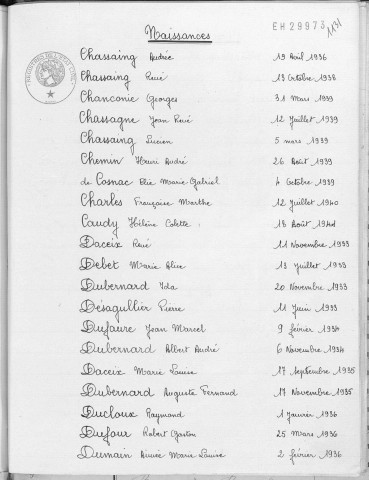 Naissances
EH 29973
1131
Chassaing Andrée 19 Avril 1936
Chassaing René 13 Octobre 1938
Chanconie Georges 31 Mars 1939
Chassagne Jean René 12 Juillet 1939
Chassaing Lucien 5 mars 1939
Chemin Henri André 26 Août 1939
de Cosnac Elie Marie Gabriel 4 Octobre 1939
Charles Françoise Marthe 12 Juillet 1940
Caudy Hélène Colette 18 Août 1941
Daceix René 11 Novembre 1933
Debet Marie Aline 13 Juillet 1933
Dubernard Ida 20 Novembre 1933
Désagullier Pierre 11 Juin 1933
Dufaure Jean Marcel 9 février 1934
Dubernard Albert André 6 Novembre 1934
Daceix Marie Louise 17 Septembre 1935
Dubernard Auguste Fernand 17 Novembre 1935
Ducloux Raymond 1 Janvier 1936
Dufour Robert Gaston 25 Mars 1936
Dumain Aimée Marie Louise 2 février 1936